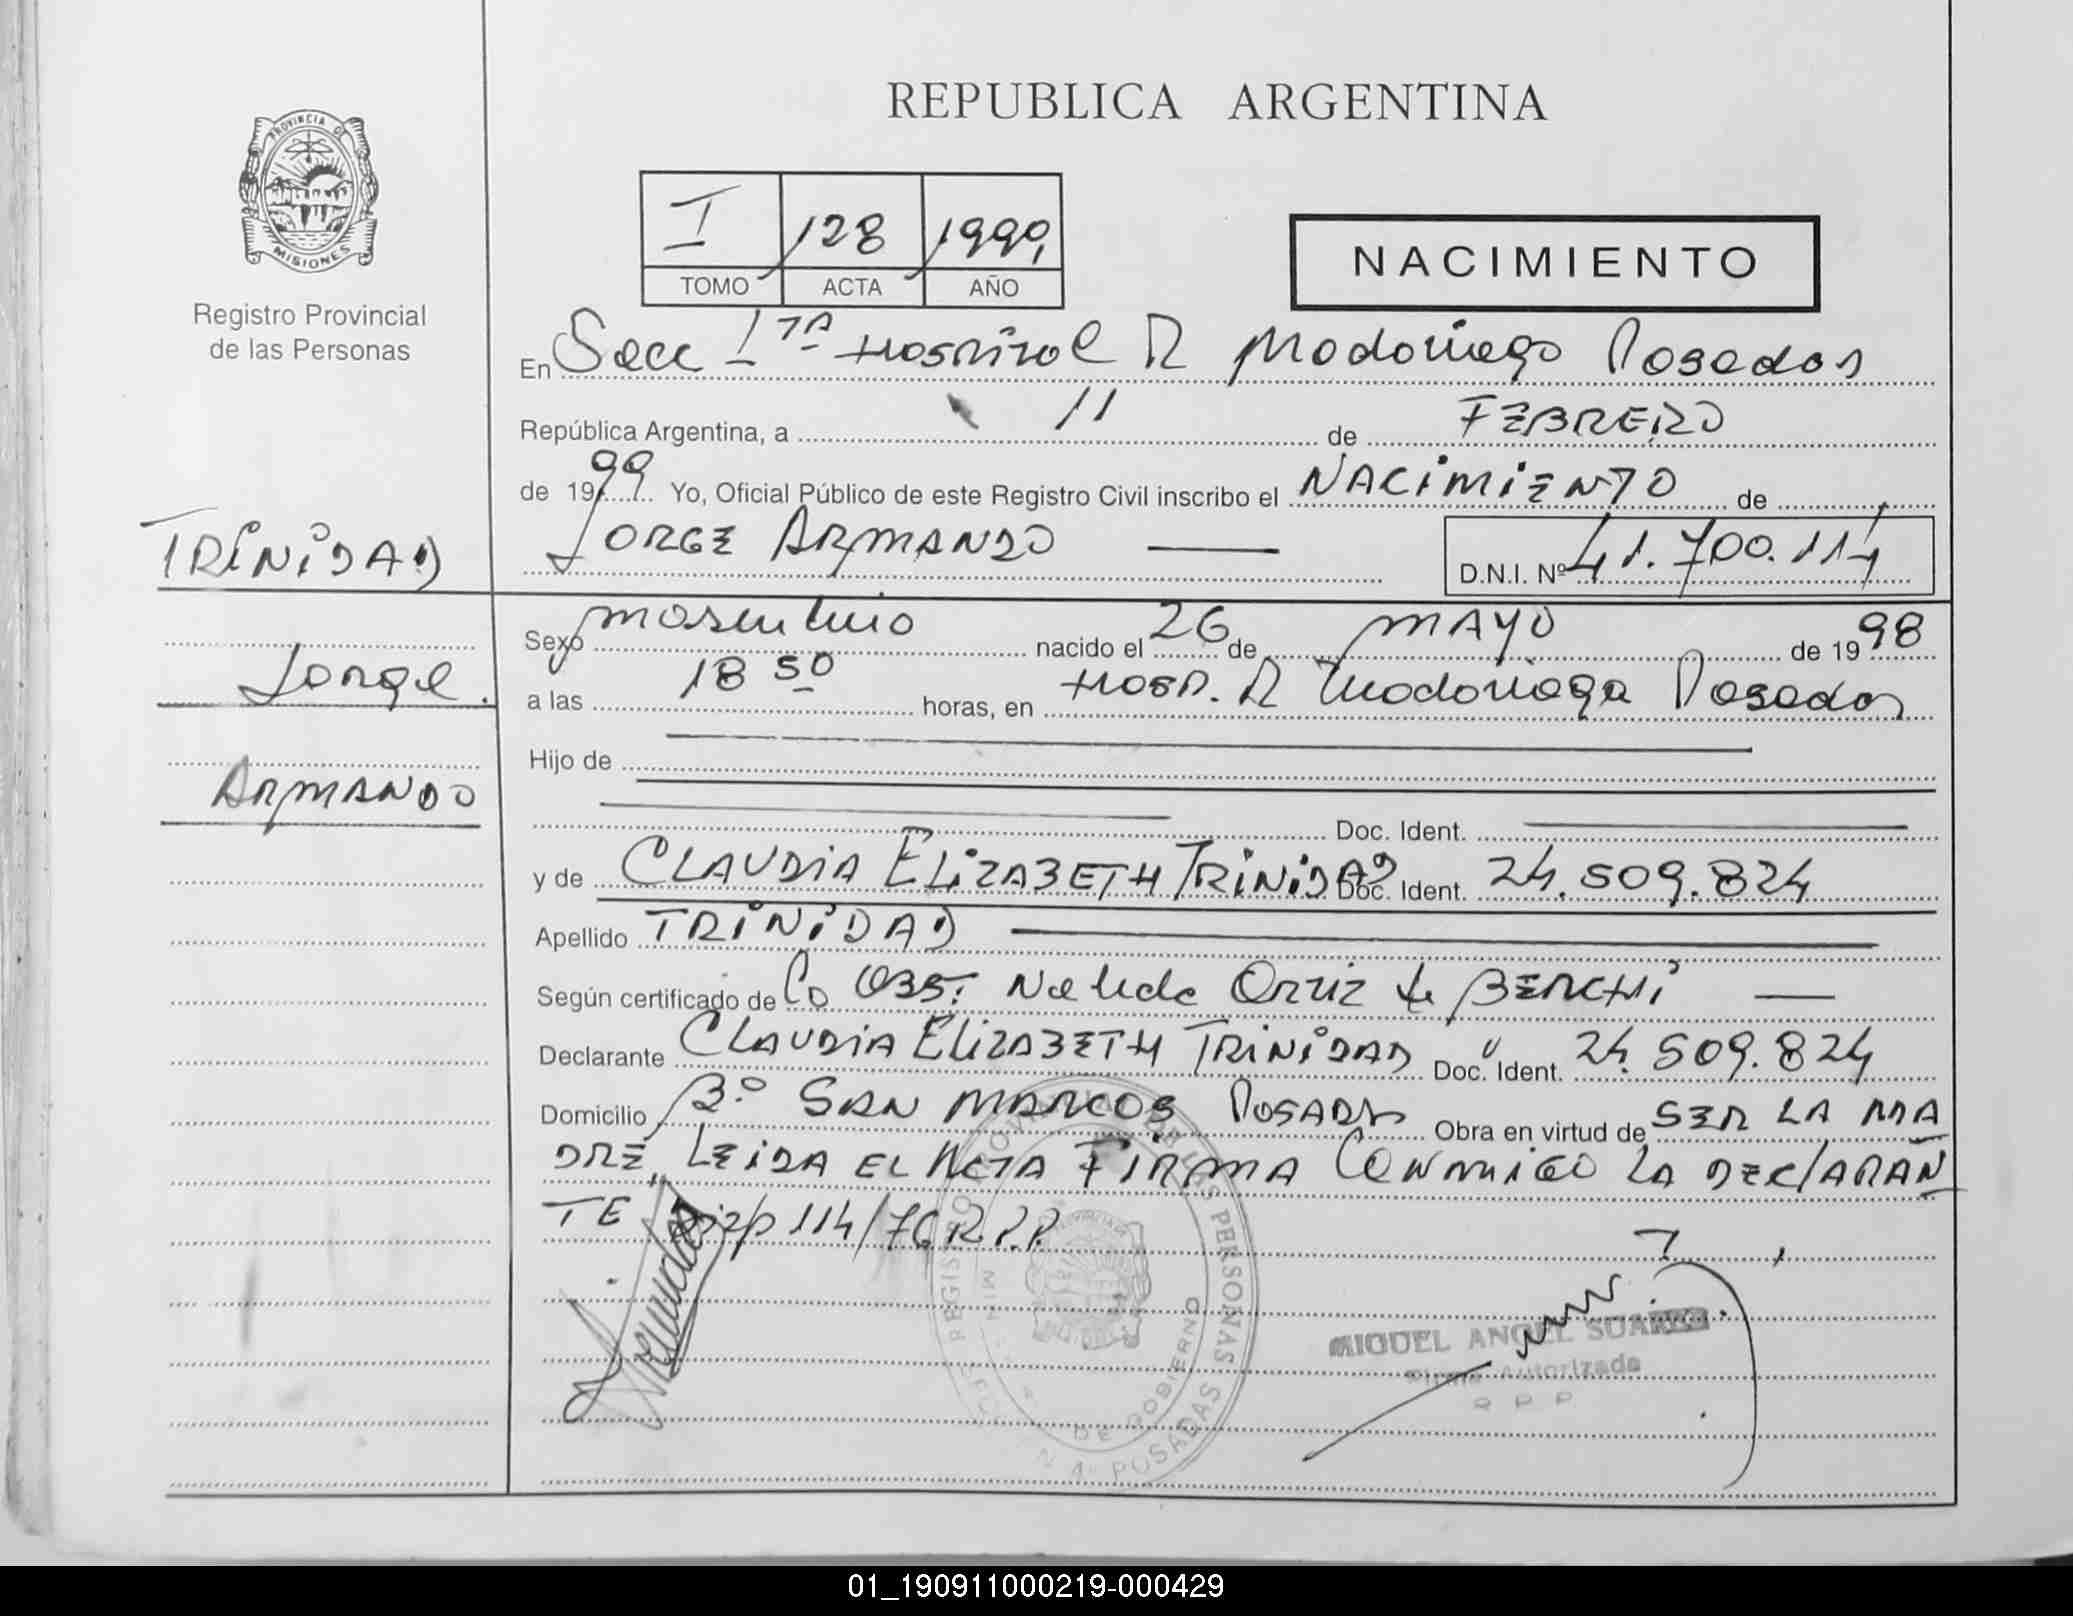 REPUBLICA ARGENTINA
PROVINCIA DE
MISIONES
Registro Provincial
de las Personas
I 128 1999
TOMO ACTA AÑO
NACIMIENTO
En Secc 1ra Hospital R Madariaga Posadas
República Argentina, a 11 de FEBRERO
de 1999 Yo, Oficial Público de este Registro Civil inscribo el NACIMIENTO de
JORGE ARMANDO D.N.I. Nº 41.700.114
TRINIDAD
Jorge
ARMANDO
Sexo masculino nacido el 26 de MAYO de 1998
a las 18 50 horas, en Hosp. R Madariaga Posadas
Hijo de
Doc. Ident.
y de CLAUDIA ELIZABETH TRINIDAD Doc. Ident. 24.509.824
Apellido TRINIDAD
Según certificado de OBST. Ortiz de BERCHI
Declarante CLAUDIA ELIZABETH TRINIDAD Doc. Ident. 24.509.824
Domicilio Bº SAN MARCOS POSADAS Obra en virtud de SER LA MA
DRE, LEIDA EL ACTA FIRMA CONMIGO LA DECLARAN
TE Disp 114/76 R.P.P.
REGISTRO PROVINCIAL DE LAS PERSONAS
DE GOBIERNO
POSADAS
MIGUEL ANGEL SUAREZ
Firma Autorizada
R P P
01_190911000219-000429